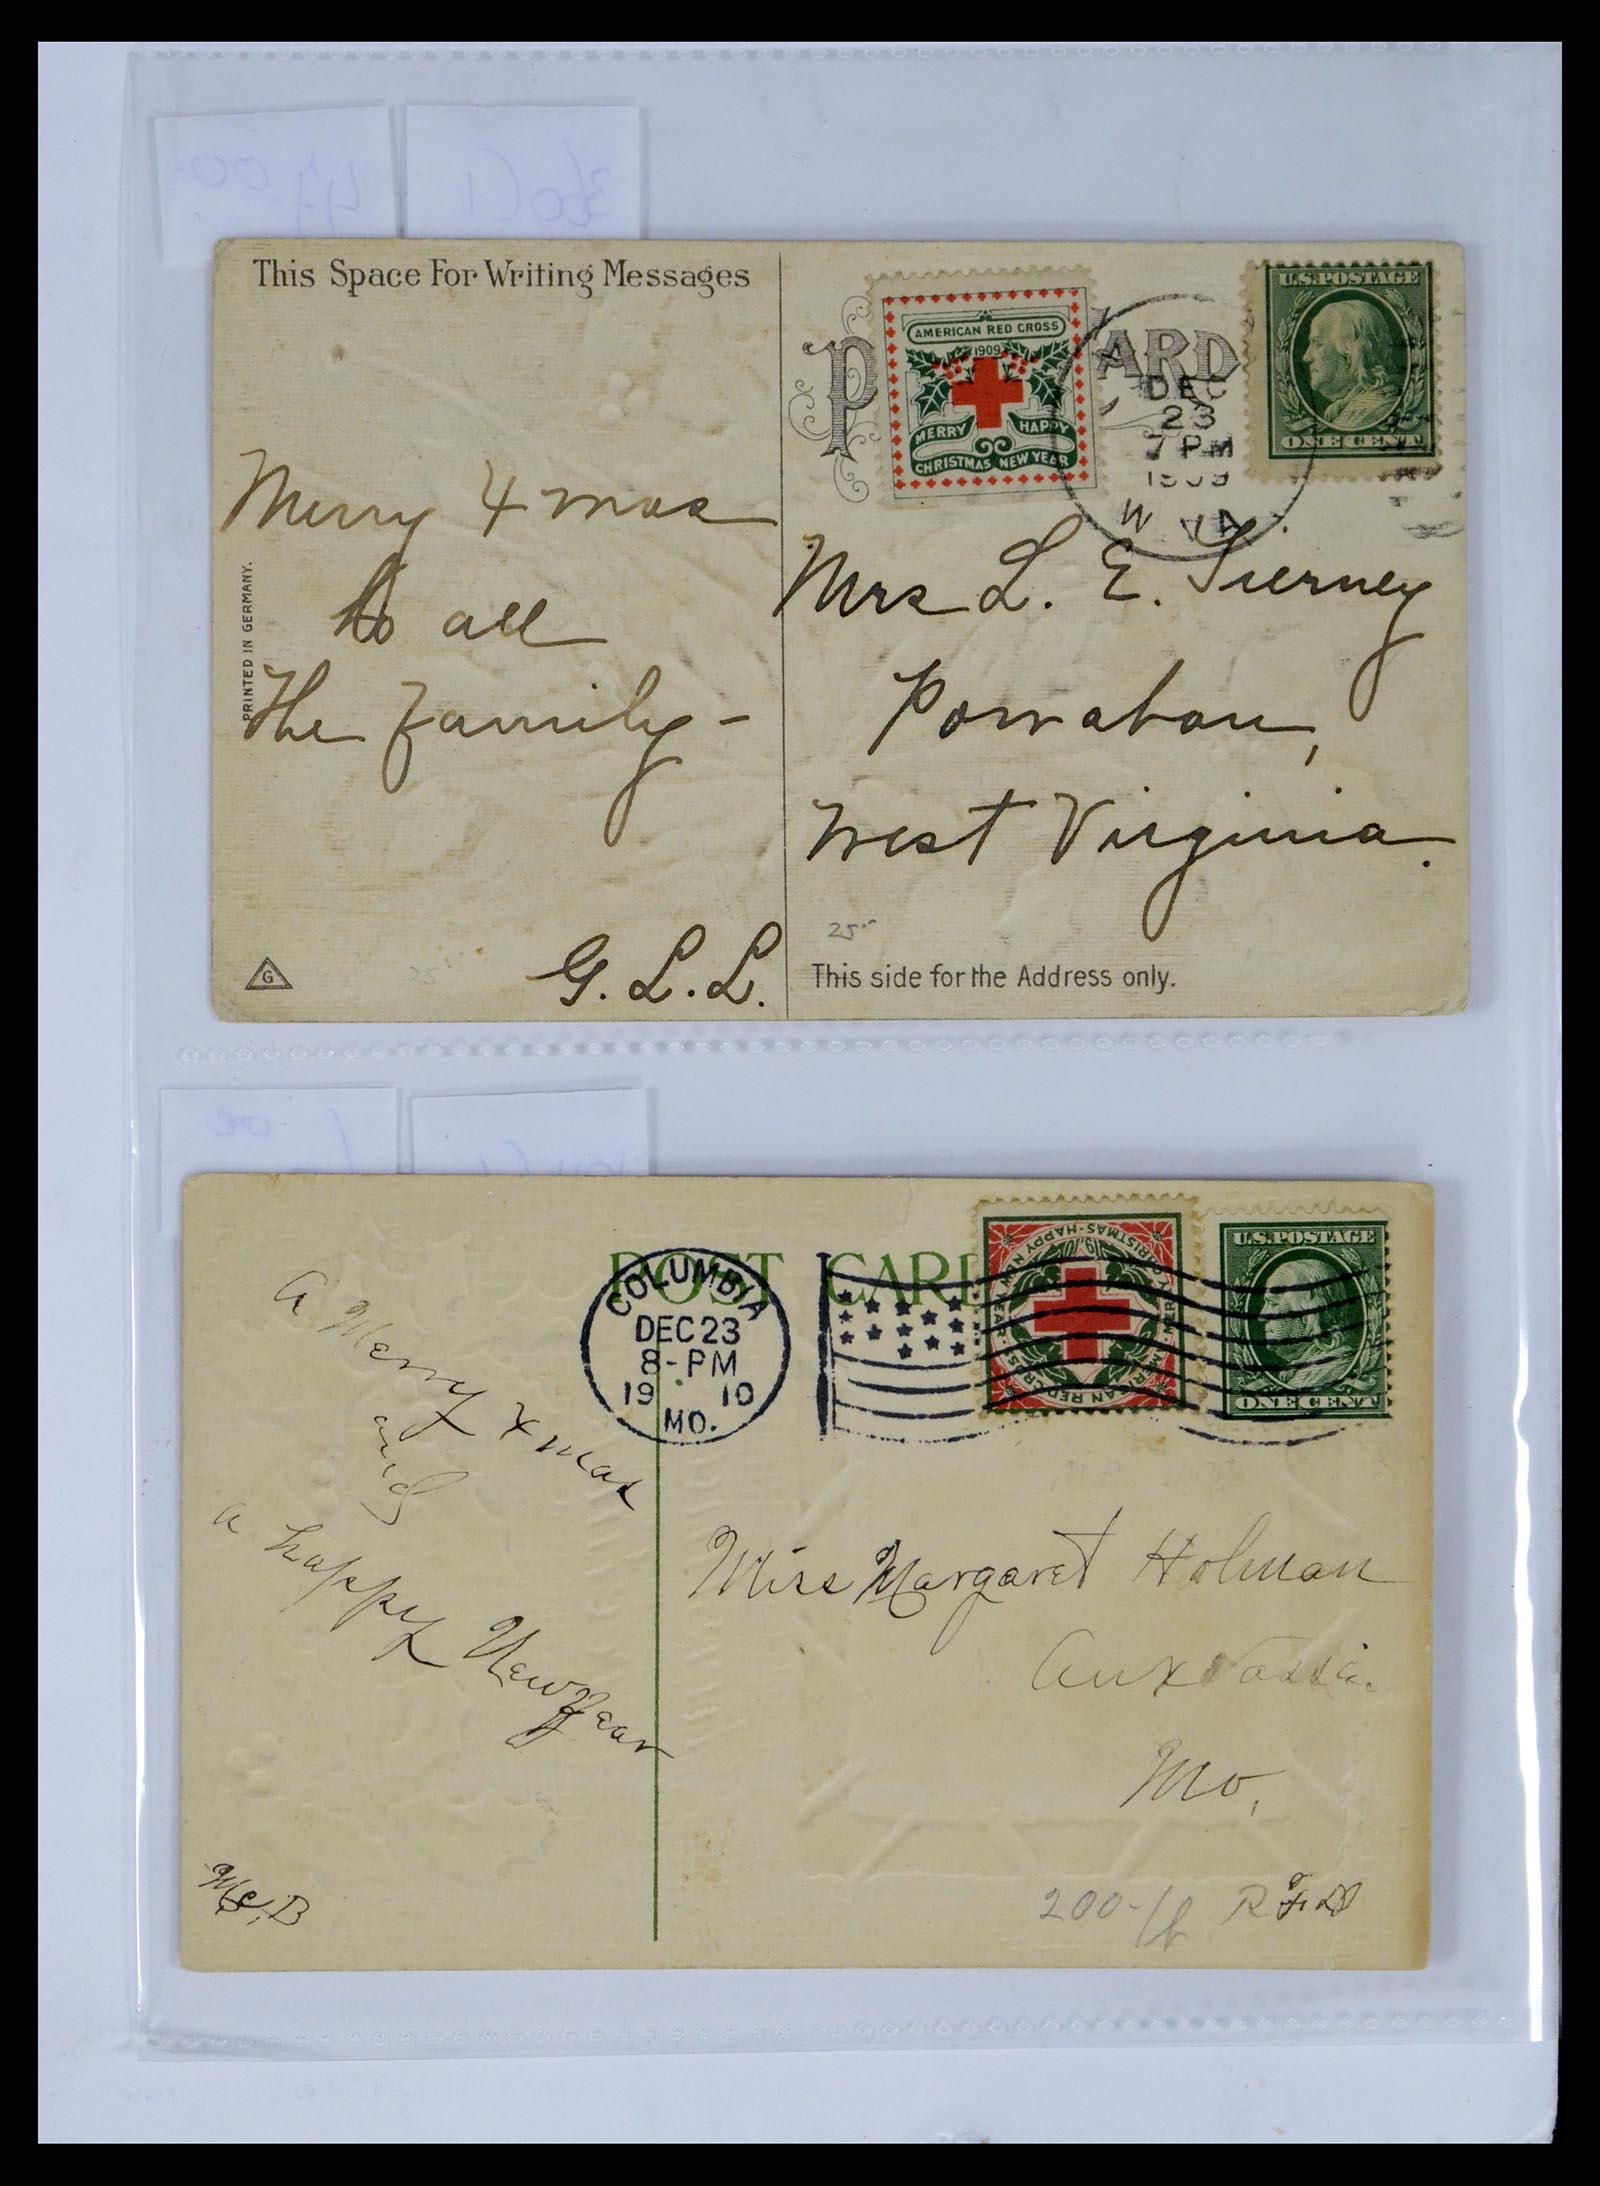 This Space For Writing Messages
AMERICAN RED CROSS
1909
MERRY HAPPY
CHRISTMAS NEW YEAR
ARD
U.S. POSTAGE
ONE CENT
DEC
23
7 PM
1909
W. VA.
Merry Xmas
to all
The Family -
G. L. L.
PRINTED IN GERMANY.
G
Mrs L. E. Tierney
Powhatan,
West Virginia.
25
This side for the Address only.
POST CARD
COLUMBIA
DEC 23
8-PM
19 10
MO.
AMERICAN RED CROSS
MERRY CHRISTMAS · HAPPY NEW YEAR
1910
U.S. POSTAGE
ONE CENT
a Merry Xmas
and
a happy New Year
Miss Margaret Holman
Auxvasse.
Mo,
200-
R F D